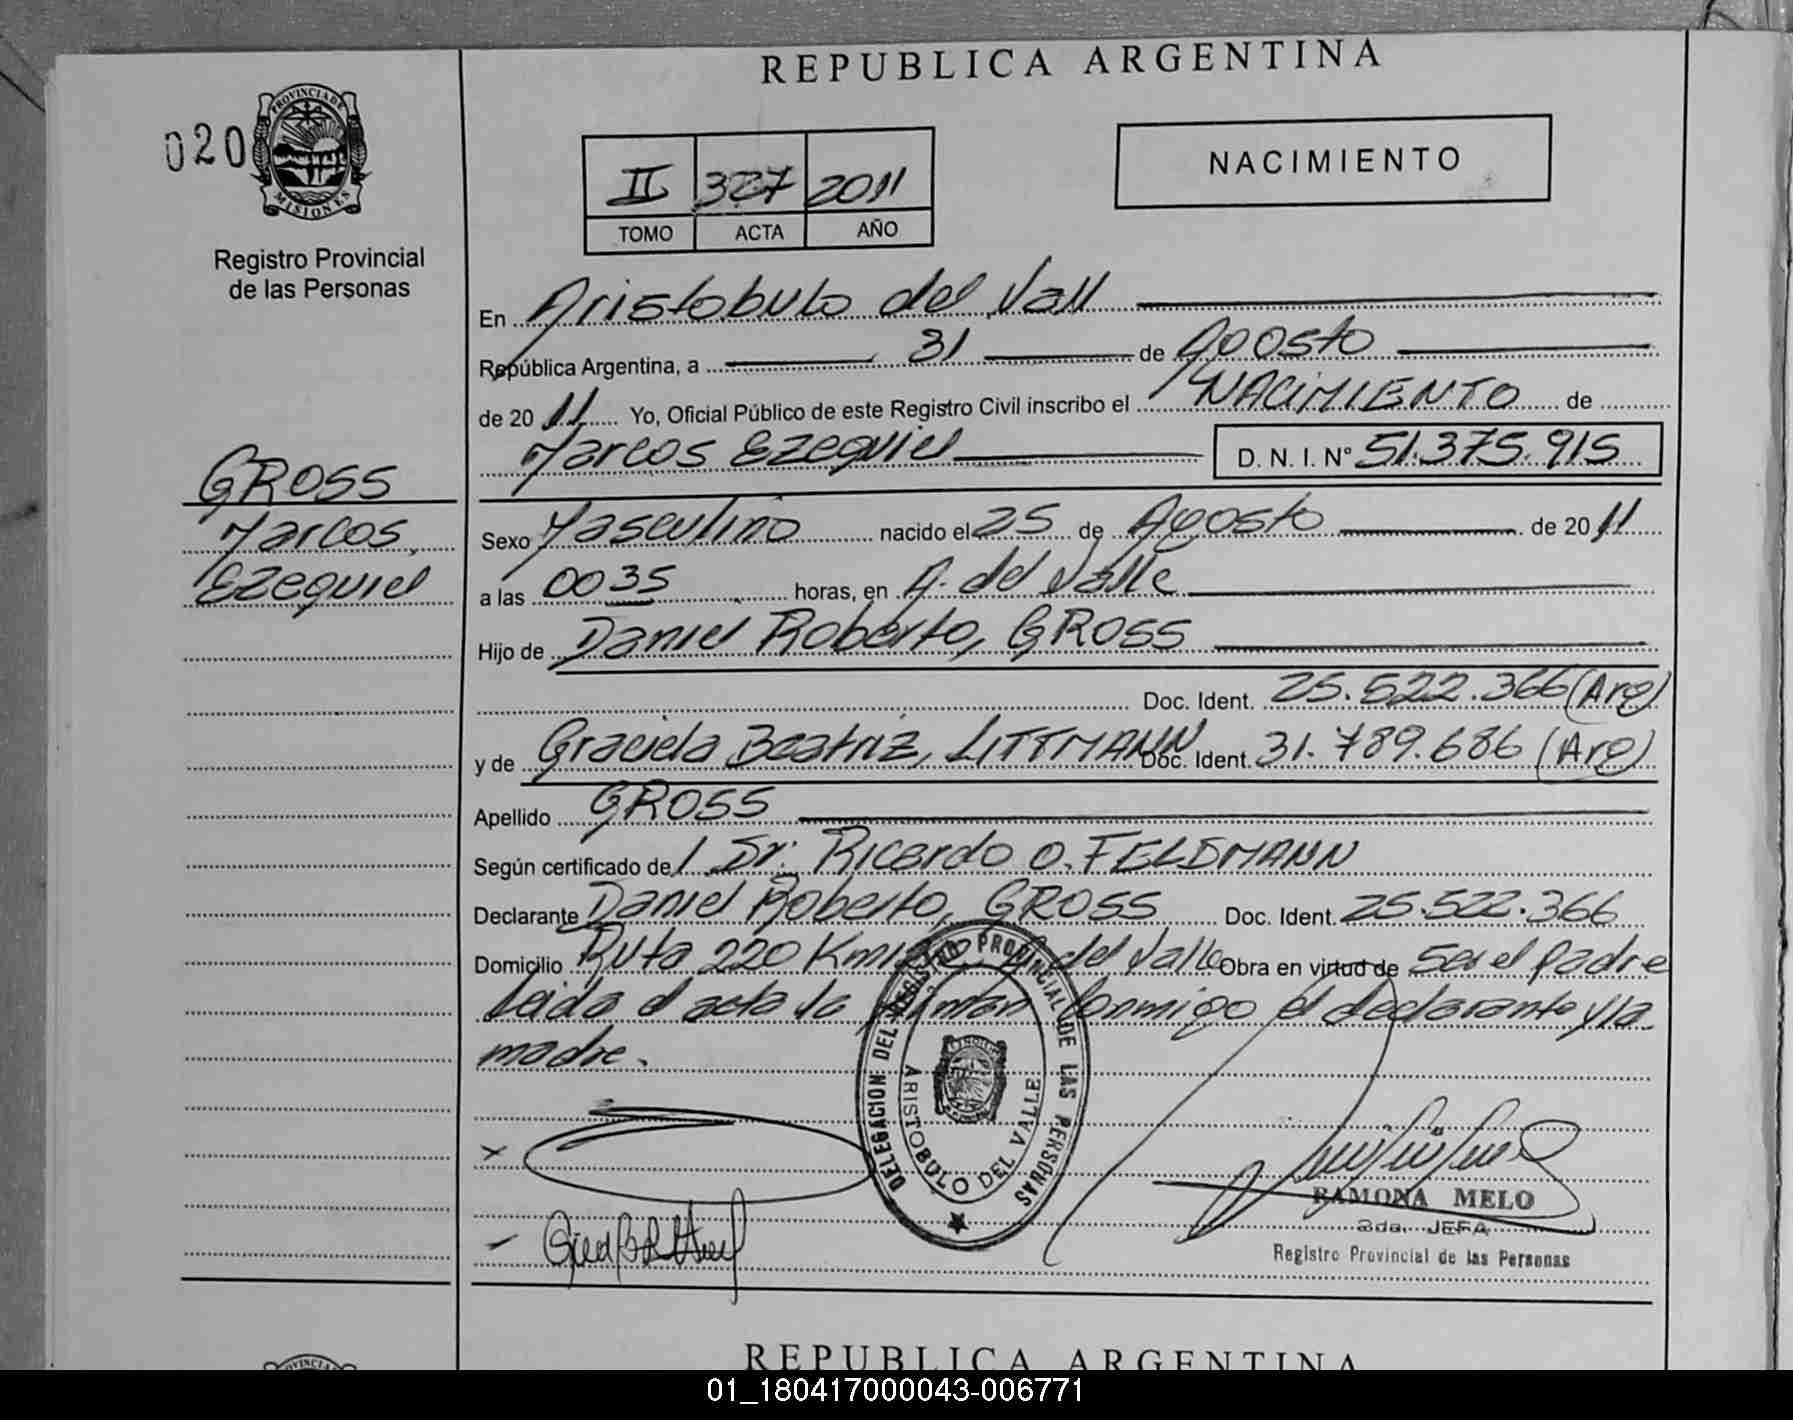 REPUBLICA ARGENTINA
020
PROVINCIA DE
MISIONES
Registro Provincial
de las Personas
NACIMIENTO
II 327 2011
TOMO ACTA AÑO
En Aristobulo del Vall
República Argentina, a 31 de Agosto
de 2011 Yo, Oficial Público de este Registro Civil inscribo el NACIMIENTO de
Marcos Ezequiel D. N. I. N° 51.375.915
GROSS
Marcos
Ezequiel
Sexo Masculino nacido el 25 de Agosto de 2011
a las 0035 horas, en A. del Valle
Hijo de Daniel Roberto, GROSS
Doc. Ident. 25.522.366 (Arg)
y de Graciela Beatriz, LITTMANN Doc. Ident. 31.789.686 (Arg)
Apellido GROSS
Según certificado de Dr. Ricardo O. FELDMANN
Declarante Daniel Roberto, GROSS Doc. Ident. 25.522.366
Domicilio Ruta 220 Km del Valle Obra en virtud de ser el padre
Leida el acta la firman conmigo el declarante y la
madre.
DELEGACION DEL REGISTRO PROVINCIAL DE LAS PERSONAS
ARISTOBULO DEL VALLE
RAMONA MELO
2da. JEFA
Registro Provincial de las Personas
REPUBLICA ARGENTINA
01_180417000043-006771